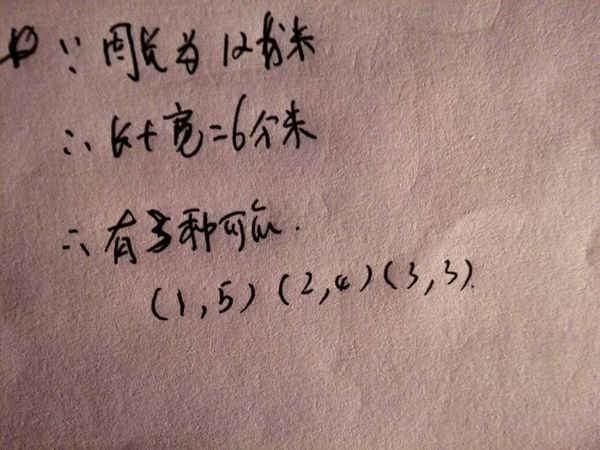 ∵ 周长为12分米
∴ 长+宽=6分米
∴ 有3种可能.
(1,5) (2,4) (3,3).